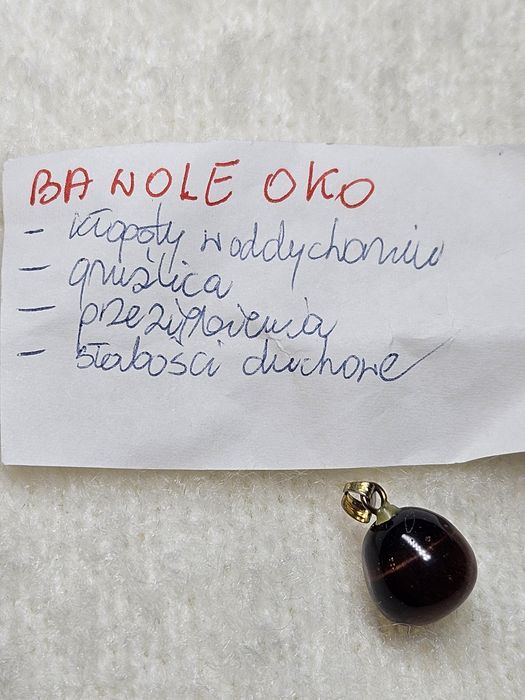 BAWOLE OKO
- kłopoty w oddychaniu
- gruźlica
- przeziębienia
- słabości duchowe